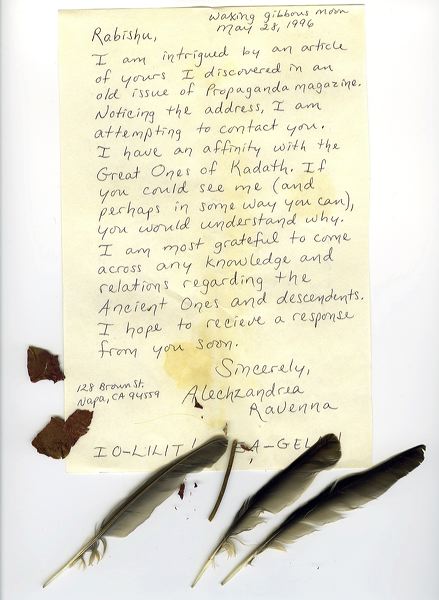 waxing gibbous moon
May 28, 1996
Rabishu,
I am intrigued by an article
of yours I discovered in an
old issue of Propaganda magazine.
Noticing the address, I am
attempting to contact you.
I have an affinity with the
Great Ones of Kadath. If
you could see me (and
perhaps in some way you can),
you would understand why.
I am most grateful to come
across any knowledge and
relations regarding the
Ancient Ones and descendents.
I hope to recieve a response
from you soon.
Sincerely,
Alechzandrea
Ravenna
128 Brown St.
Napa, CA 94559
IO-LILIT